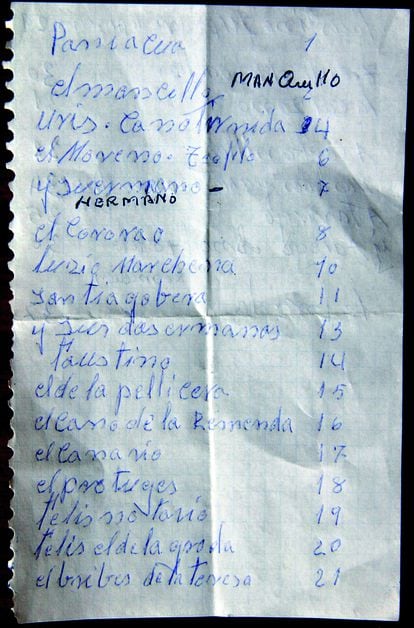 Paniacua 1
El mancillo MANQUILLO
Uris. Canoti 4
el Moreno. Teofilo 6
y suermano - 7
HERMANO
el Cororao 8
luzio Marchena 10
Santiagobera 11
y sus dosermanos 13
faustino 14
el de la pellicera 15
el Cano de la Remenda 16
el Canario 17
el protuges 18
felis notario 19
felis el de la goda 20
el bribes de la teresa 21